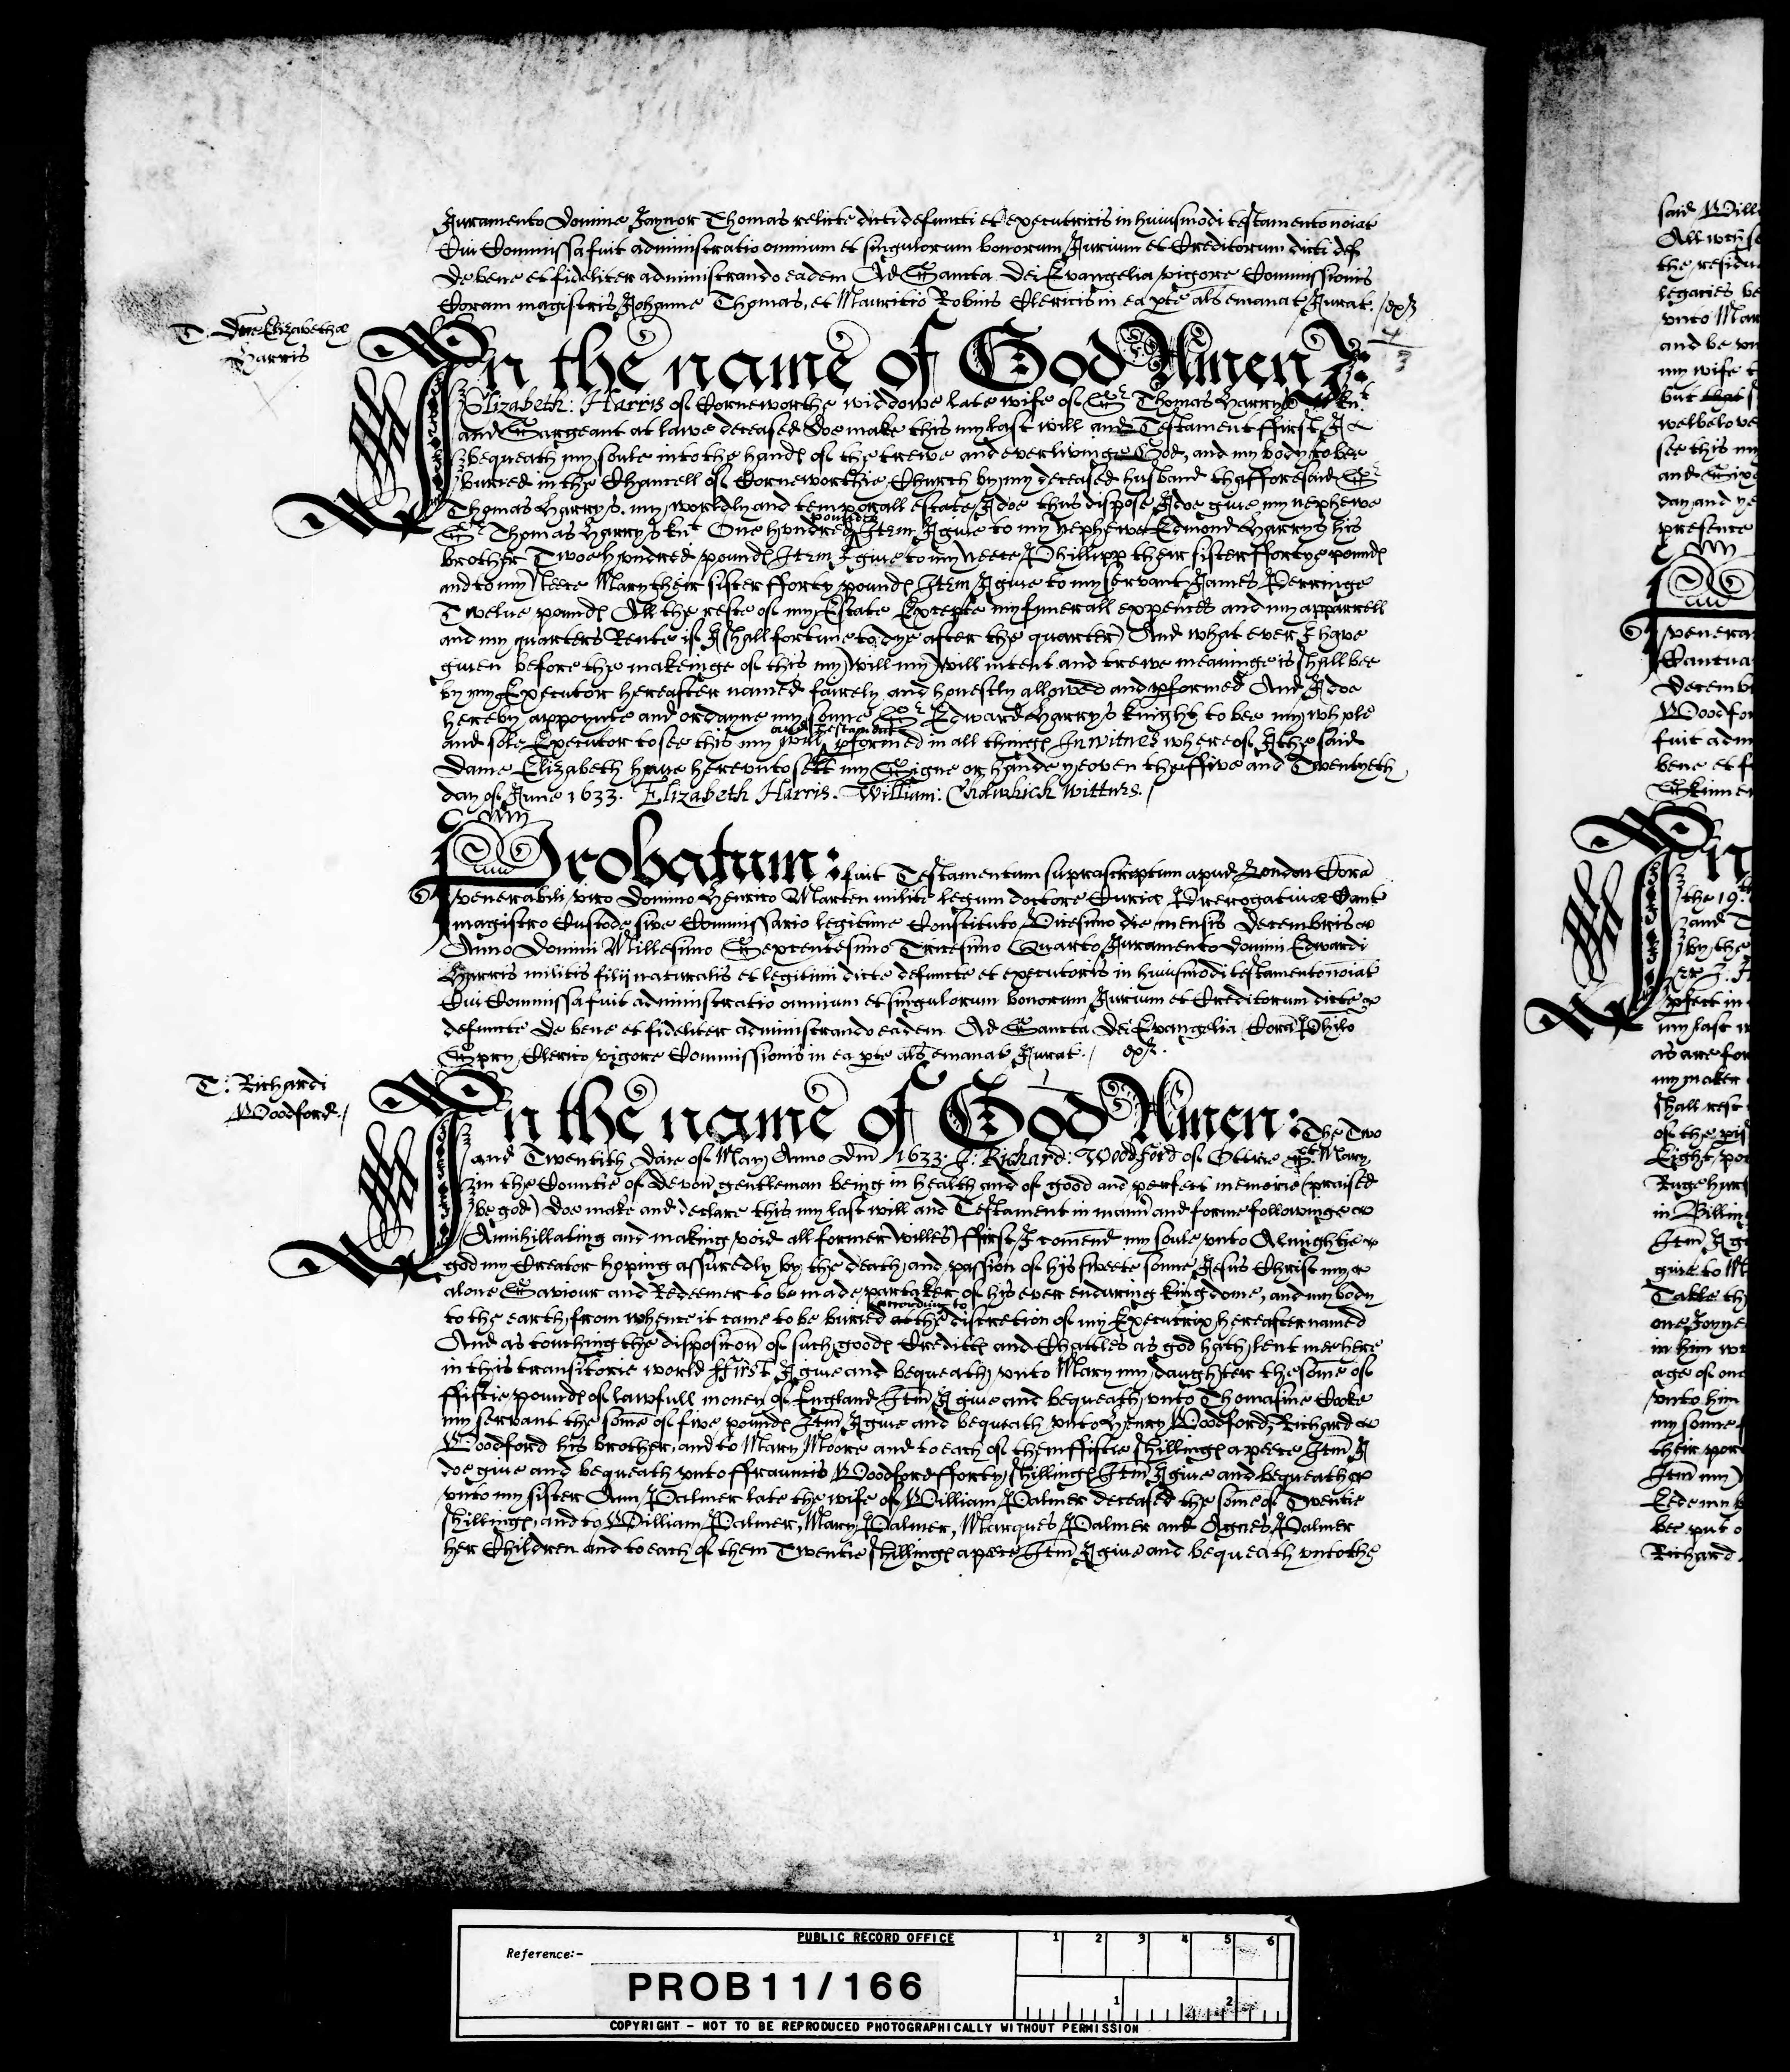 Juramento Domine Jaynor Thomas relicte dicti defuncti et executricis in huiusmodi testamento noiat
Cui Commissa fuit administratio omnium et singulorum bonorum Jurium et Creditorum dicti def
De bene et fideliter administrando eadem Ad Sancta Dei Evangelia vigore Commissionis
Coram magistris Johanne Thomas, et Mauricio Robins Clericis in ea pte als emanat Jurat. /
T. Dne Elizabethæ
Harris
In the name of God Amen I:
Elizabeth: Harris of Corneworthe widdowe late wife of Sr Thomas Harrys knt
and Sargeant at lawe deceased doe make this my last will and Testament ffirst I
bequeath my soule into the hands of the trewe and everlivinge God, and my body to bee
buried in the Chancell of Corneworthie Church by my deceased husband thafforesaid Sr
Thomas Harrys. my worldly and temporall estate I doe thus dispose I doe give my nephewe
Sr Thomas Harrys knt One hundred pounds Item I give to my nephewe Edmond Harrys his
brother Twoe hundred pounds Item I give to my neece Phillipp their sister ffortye pounds
and to my Neece Mary their sister fforty pounds Item I give to my servant James Perringe
Twelve pounds All the reste of my Estate Excepte my funerall expences and my apparrell
and my quarters Rente if I shall fortune to dye after the quarter And what ever I have
given before the makeinge of this my will my will intent and trewe meaninge is shall bee
by my Executor hereafter named fairely and honestly allowed and pformed And I doe
hereby appoynte and ordayne my sonne Sr Edward Harrys knight to bee my whole
and sole Executor to see this my will and Testament pformed in all things In witnes whereof I the said
Dame Elizabeth have herevnto sett my Signe or hande yeoven the ffive and Twentyeth
day of June 1633. Elizabeth Harris. William: wittnes. /
Probatum: fuit Testamentum suprascriptum apud London Cora
venerabili viro Domino Henrico Marten milite legum doctore Curiæ Prerogativæ Cant
magistro Custode sive Commissario legitime Constituto Vicesimo die mensis Decembris
Anno Domini Millesimo Sexcentesimo Tricesimo Quarto Juramento Domini Edwardi
Harris militis filij naturalis et legitimi dicte defuncte et executoris in huiusmodi testamento noiat
Cui Commissa fuit administratio omnium et singulorum bonorum Jurium et Creditorum dicte
defuncte De bene et fideliter administrando eadem Ad Sancta Dei Evangelia Cora Philo
Spry Clerico vigore Commissionis in ea pte als emanat Jurat. /
T: Richardi
Woodford. /
In the name of God Amen: The Two
and Twentith daie of May Anno Dm 1633. I: Richard: Woodford of Ottrie St Mary
in the Countie of Devon gentleman being in health and of good and perfect memorie (praised
be god) doe make and declare this my last will and Testament in mann and forme followinge
(Annihillating and making void all former willes) ffirst I comend my soule vnto Almightie
god my Creator hoping assuredly by the death and passion of his sweete sonne Jesus Christ my
alone Saviour and Redeemer to be made partaker of his ever enduring kingdome, and my body
to the earth from whence it came to be buried according to the discretion of my Executrix hereafter named
And as touching the disposicon of such goods Creditts and Chattles as god hath lent mee here
in this transitorie world ffirst I give and bequeath vnto Mary my daughter the some of
ffiftie pounds of lawfull money of England Itm I give and bequeath vnto Thomasine Cooke
my servant the some of five pounds Itm I give and bequeath vnto Henry Woodford, Richard
Woodford his brother, and to Mary Moore and to each of them ffiftie shillings apeece Itm I
doe give and bequeath vnto ffrauncis Woodford fforty shillings Itm I give and bequeath
vnto my sister Ann Palmer late the wife of William Palmer deceased the some of Twentie
shillings, and to William Palmer, Mary Palmer, Marques Palmer and Agnes Palmer
her Children and to each of them Twentie shillings apeece Itm I give and bequeath vnto the
said Will
the residu
legacies be
vnto Mar
and be vn
my wife
but that
welbelove
see this my
day and ye
presence
In
venera
Cantua
Decemb
Woodfor
fuit adm
bene et f
Skinner
In
the 19th
and T
by the
pfect in
my last w
as are for
my maker
shall rest
Eight po
in
Itm I g
give to M
in him
age of one
vnto him
my sonne
their por
Itm my
bee put o
Richard
PUBLIC RECORD OFFICE
Reference:-
PROB 11/166
1 2 3 4 5 6
1 2
COPYRIGHT - NOT TO BE REPRODUCED PHOTOGRAPHICALLY WITHOUT PERMISSION